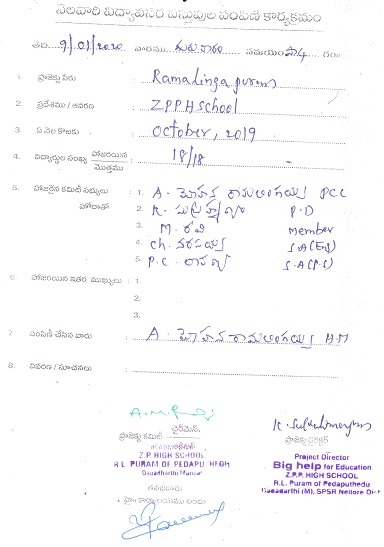 నెలవారి విద్యావసర వస్తువుల పంపిణి కార్యక్రమం
తేది 9/01/2020 వారము గురువారం సమయం
1. ప్రాజెక్టు పేరు Ramalinga puram
2. ప్రదేశము / ఆవరణ ZPPH School
3. ఏ నెల కొఱకు October, 2019
4. విద్యార్థుల సంఖ్య హాజరయిన / మొత్తము 18/18
5. హాజరైన కమిటీ సభ్యులు : 1. A. మోహన రామలింగయ్య PCC
హోదాతో 2. K. సుబ్రహ్మణ్యం P.D
3. M. రవి Member
4. Ch. నరసయ్య S.A(En)
5. P.C. S.A(P.S)
6. హాజరయిన ఇతర ముఖ్యులు : 1.
2.
3.
7. పంపిణీ చేసిన వారు A. మోహన రామలింగయ్య H.M
8. వివరణ / సూచనలు
ఛైర్మెన్,
ప్రాజెక్టు కమిటీ
HEADMASTER
Z.P. HIGH SCHOOL
R.L. PURAM OF PEDAPUTHEDU
Dagadarthi Mandal
K. Subrahmanyam
ప్రాజెక్టు డైరెక్టర్
Project Director
Big help for Education
Z.P.P. HIGH SCHOOL
R.L. Puram of Pedaputhedu
Dagadarthi (M), SPSR Nellore Dist